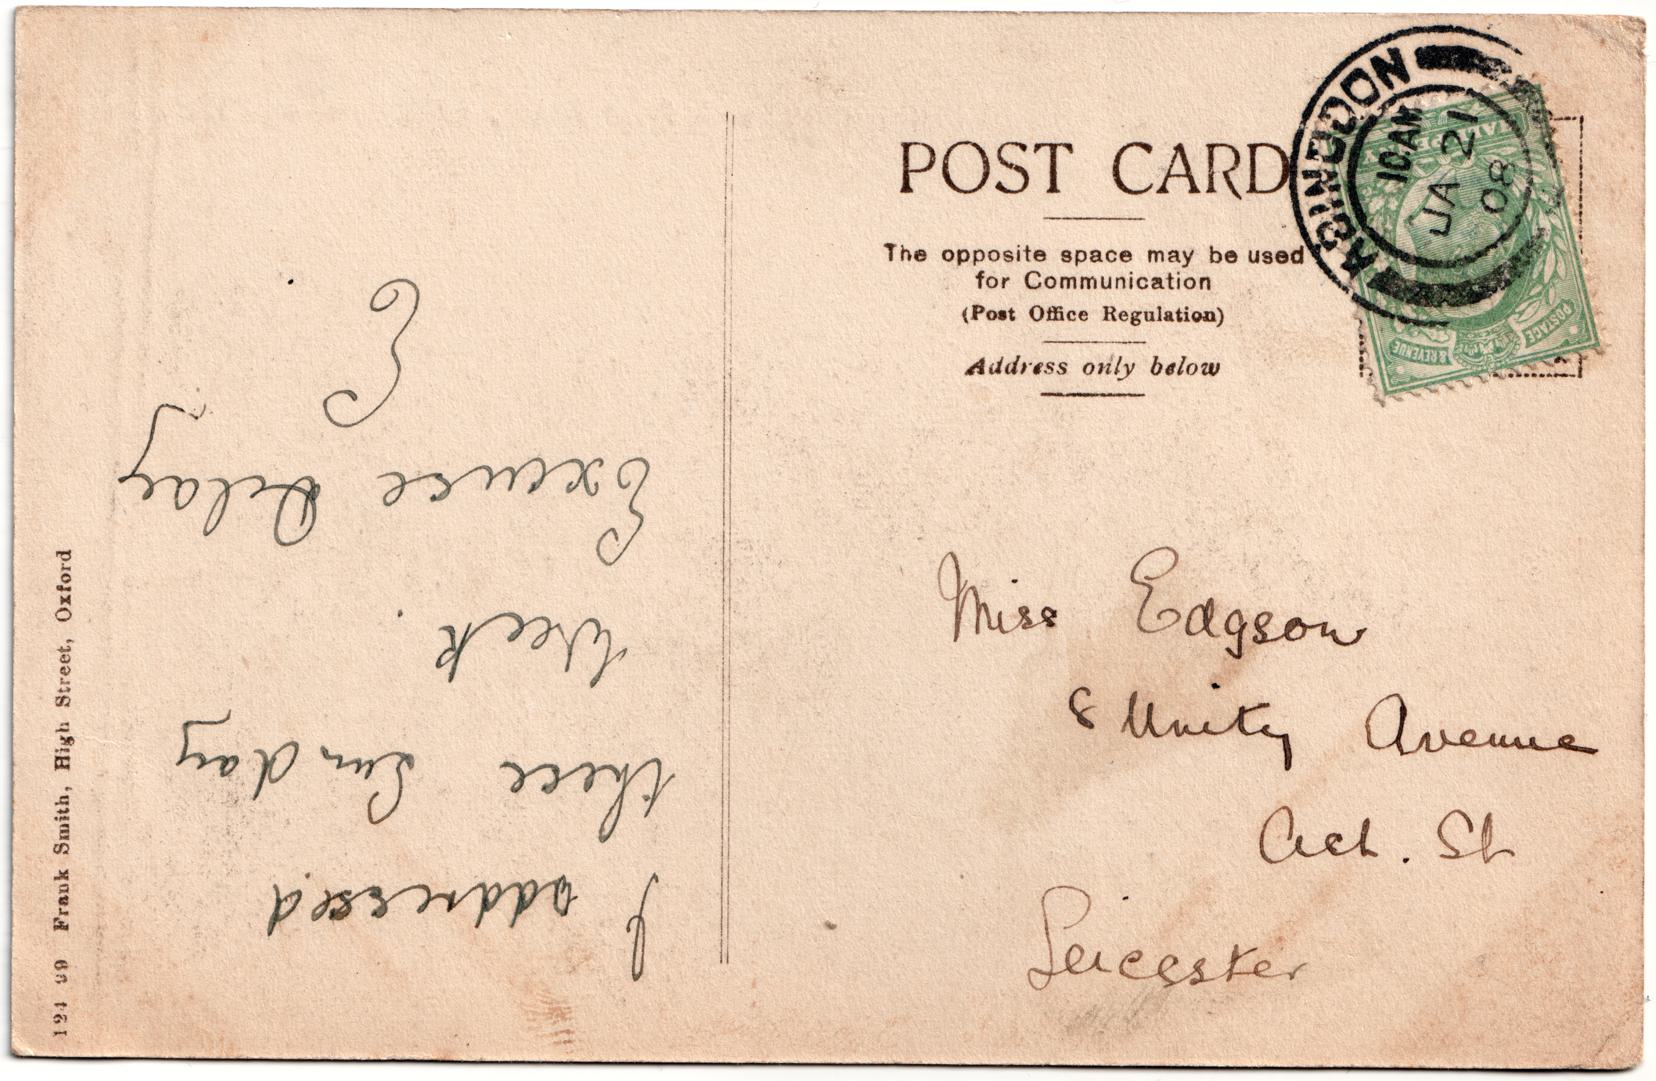 POST CARD
The opposite space may be used
for Communication
(Post Office Regulation)
Address only below
ABINGDON
10 AM
JA 21
08
HALF PENNY
POSTAGE & REVENUE
Miss Edgson
8 Unity Avenue
St
Leicester
I addressed
these Sunday
week.
Excuse Delay
E.
Frank Smith, High Street, Oxford